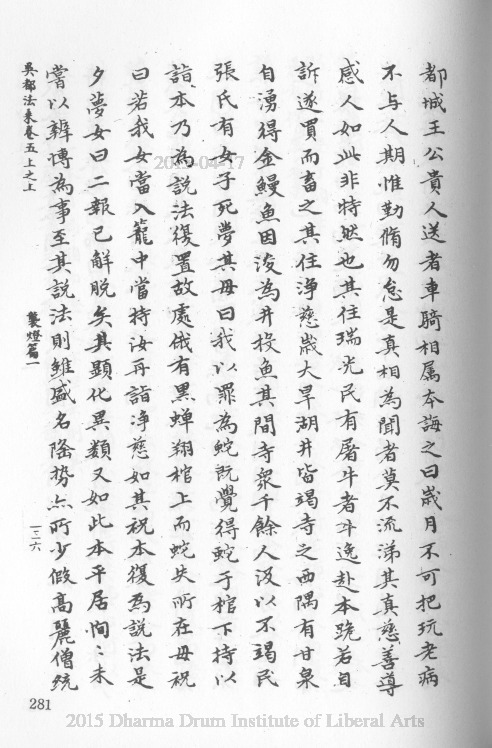 都城王公貴人送者車騎相属本誨之曰歳月不可把玩老病
不与人期惟勤脩勿怠是真相為聞者莫不流涕其真慈善導
感人如此非特然也其住瑞光民有屠牛者牛逸赴本跪若自
訴遂買而畜之其住浄慈歳大旱湖井皆竭寺之西隅有甘泉
自湧得金鰻魚因浚為井投魚其間寺衆千餘人汲以不竭民
張氏有女子死夢其母曰我以罪為蛇既覺得蛇于棺下持以
詣本乃為説法復置故處俄有黒蟬翔棺上而蛇失所在母祝
曰若我女當入籠中當持汝再詣浄慈如其祝本復為説法是
夕夢女曰二報已解脱矣其顕化異類又如此本平居恂〻未
嘗以辯博為事至其説法則雖盛名隆勢亦所少假高麗僧統
吳都法乘卷五上之上
襲燈篇一
一三六
281
2015 Dharma Drum Institute of Liberal Arts